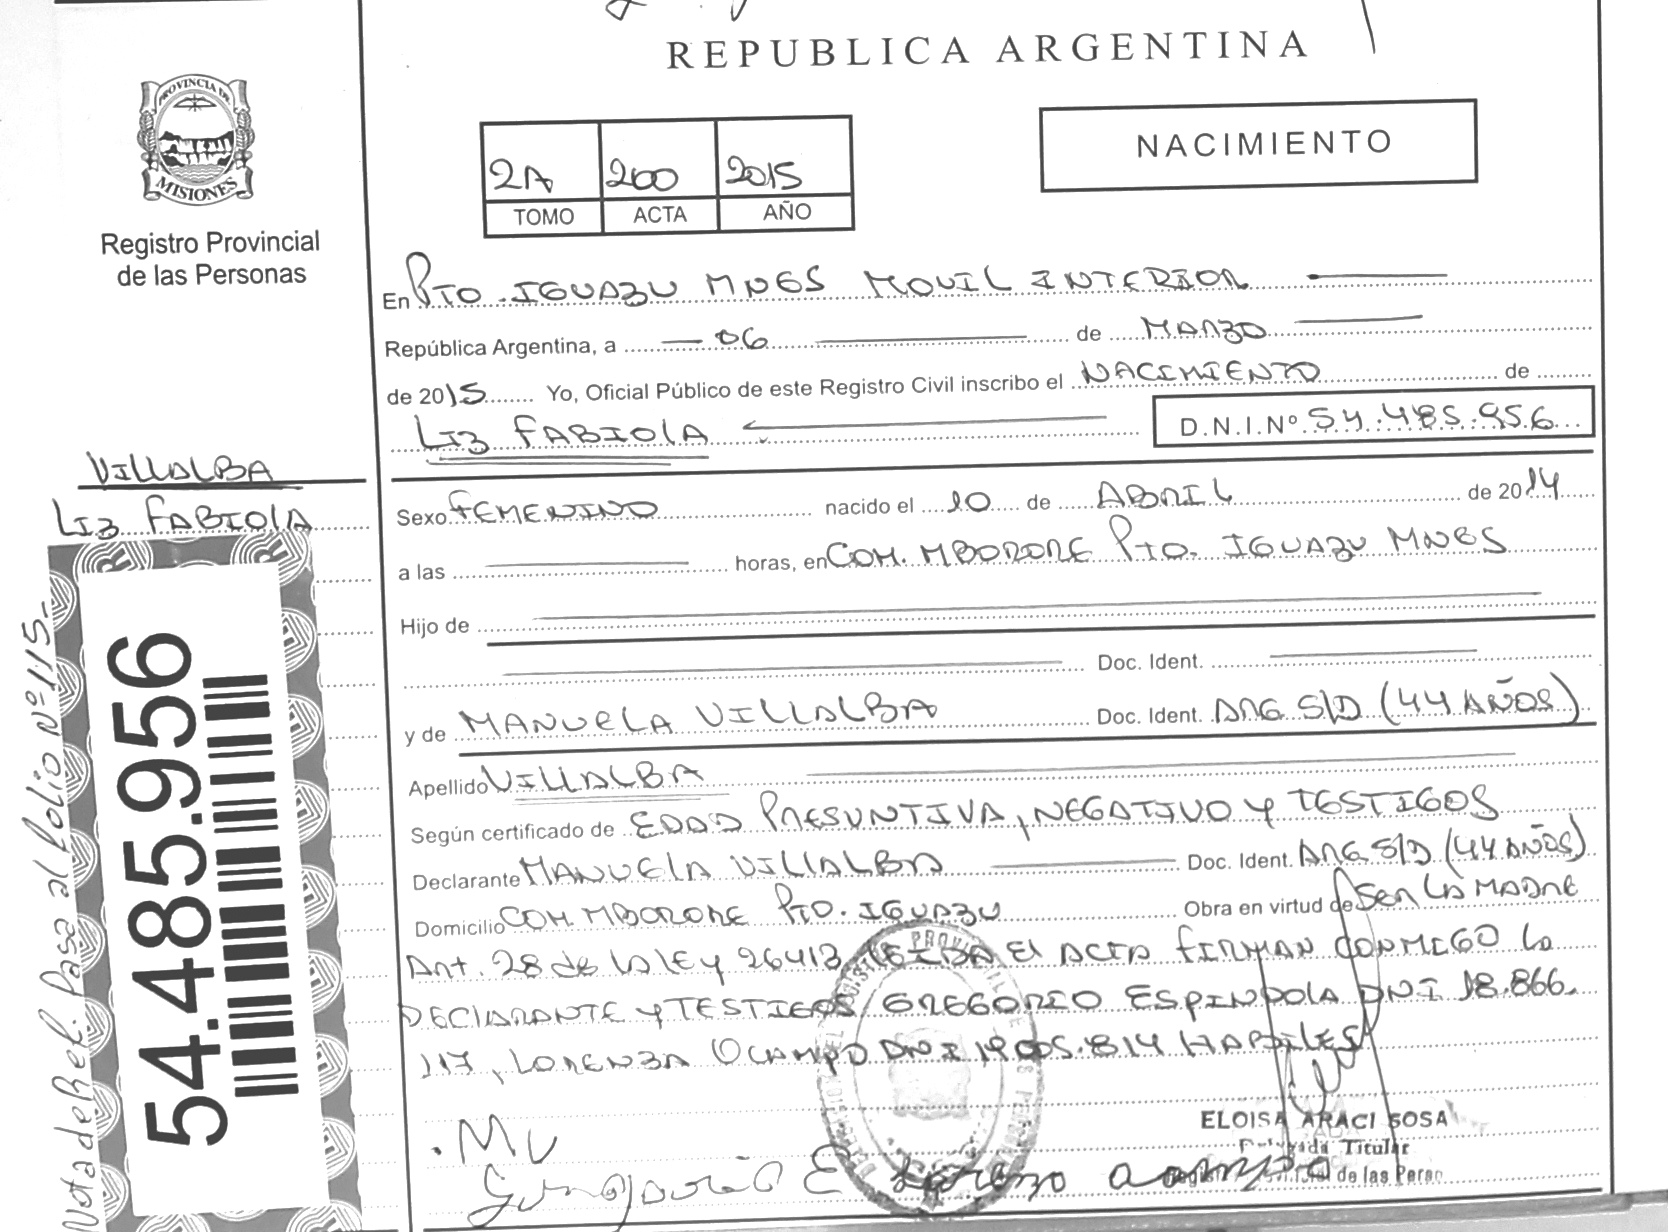 REPUBLICA ARGENTINA
PROVINCIA DE
MISIONES
Registro Provincial
de las Personas
2A 200 2015
TOMO ACTA AÑO
NACIMIENTO
En PTO. IGUAZU MNES MOVIL INTERIOR
República Argentina, a 06 de MARZO
de 2015 Yo, Oficial Público de este Registro Civil inscribo el NACIMIENTO de
LIZ FABIOLA D.N.I.Nº 54.485.956
VILLALBA
LIZ FABIOLA
Sexo FEMENINO nacido el 10 de ABRIL de 2014
a las horas, en COM. MBORORE PTO. IGUAZU MNES
Hijo de
Doc. Ident.
y de MANUELA VILLALBA Doc. Ident. ARG S/D (44 AÑOS)
Apellido VILLALBA
Según certificado de EDAD PRESUNTIVA, NEGATIVO Y TESTIGOS
Declarante MANUELA VILLALBA Doc. Ident. ARG S/D (44 AÑOS)
Domicilio COM. MBORORE PTO. IGUAZU Obra en virtud de SER LA MADRE
Art. 28 de LA LEY 26413 LEIDA El ACTA FIRMAN CONMIGO LA
DECLARANTE Y TESTIGOS GREGORIO ESPINDOLA DNI 18.866.
117, LORENZA OCAMPO DNI 19.005.814 HABILES
ELOISA ARACI SOSA
Delegada Titular
de las Perso
. MV
54.485.956
Nota de Ref. Pasa al folio Nº 115.-